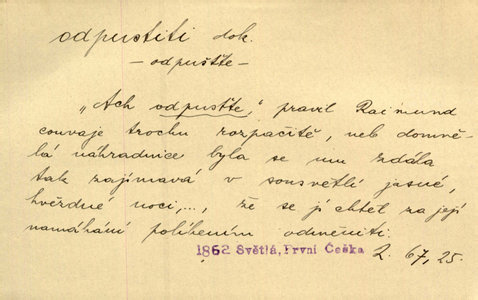 odpustiti dok.
— odpusťte —
„Ach odpusťte," pravil Raimund
couvaje trochu rozpačitě, neb domně-
lá náhradnice byla se mu zdála
tak zajímavá v sousvětlí jasné,
hvězdné noci,..., že se jí chtěl za její
namáhání políbením odměniti.
1862 Světlá, První Češka 2. 67, 25.